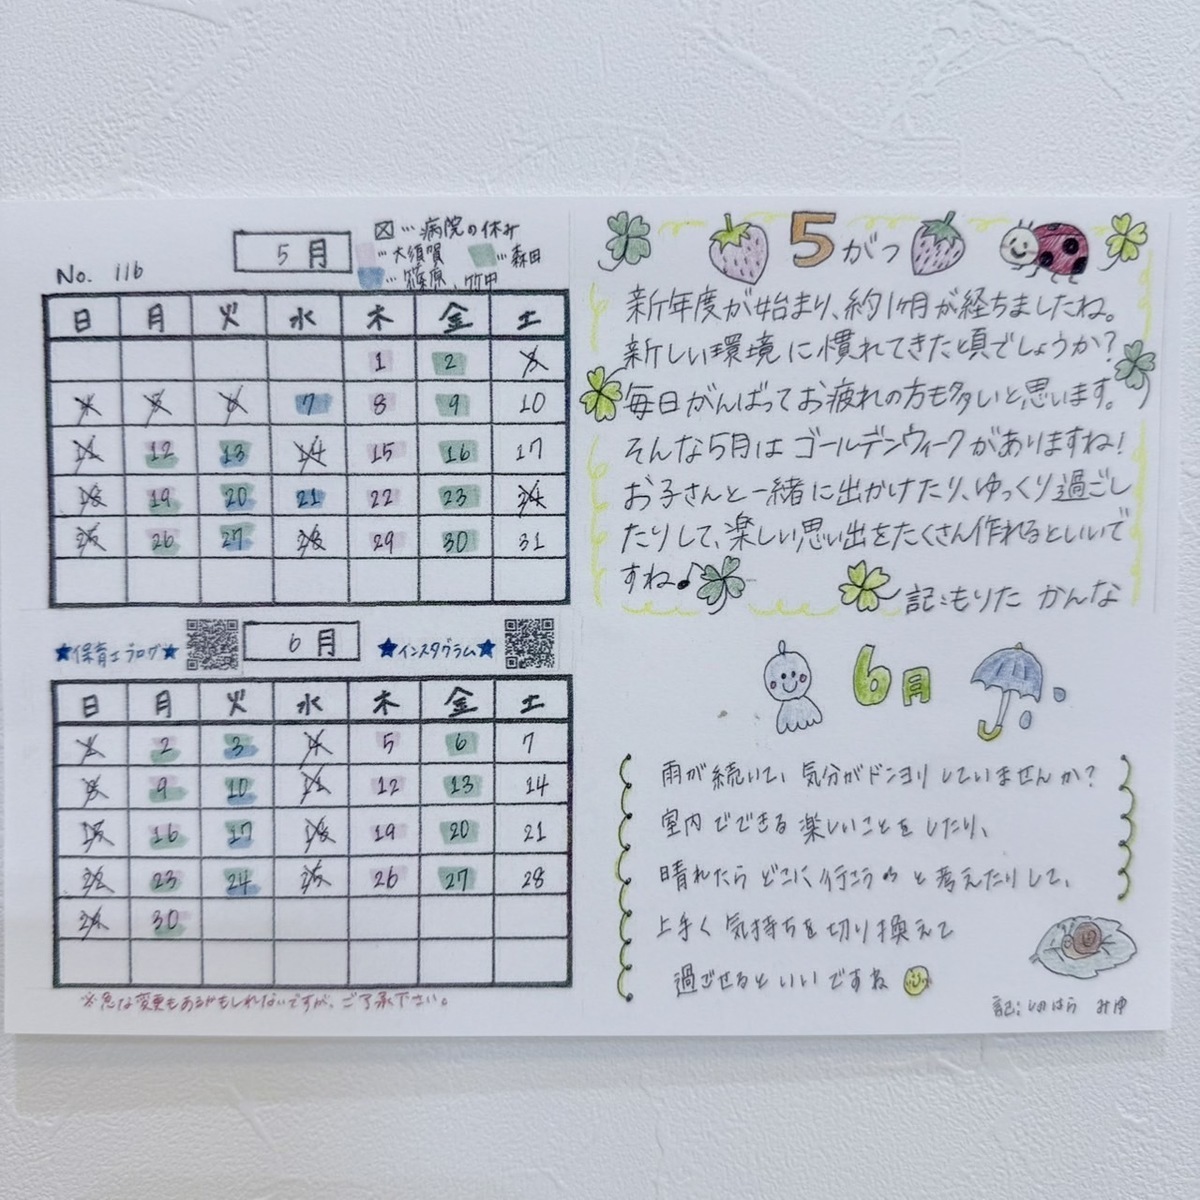 No. 116
5月
☒…病院の休み
…大須賀 …森田
…篠原、竹中
日 月 火 水 木 金 土
1 2 3
4 5 6 7 8 9 10
11 12 13 14 15 16 17
18 19 20 21 22 23 24
25 26 27 28 29 30 31
★保育士ブログ★
6月
★インスタグラム★
日 月 火 水 木 金 土
1 2 3 4 5 6 7
8 9 10 11 12 13 14
15 16 17 18 19 20 21
22 23 24 25 26 27 28
29 30
※急な変更もあるかもしれないですが、ご了承下さい。
5がつ
新年度が始まり、約1ヶ月が経ちましたね。
新しい環境に慣れてきた頃でしょうか?
毎日がんばってお疲れの方も多いと思います。
そんな5月はゴールデンウィークがありますね!
お子さんと一緒に出かけたり、ゆっくり過ごし
たりして、楽しい思い出をたくさん作れるといいで
すね♪
記:もりた かんな
6月
雨が続いて、気分がドンヨリしていませんか?
室内でできる楽しいことをしたり、
晴れたらどこに行こうかと考えたりして、
上手く気持ちを切り換えて
過ごせるといいですね
記:しのはら みゆ